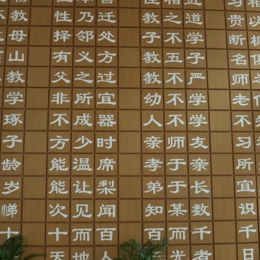 教 性乃迁 教之道 贵以
母 择邻处 子不学 断机
山 有义方 教五子 名俱
教 父之过 教不严 师之
学 非所宜 幼不学 老何
琢 不成器 人不学 不知
子 方少时 亲师友 习
龄 能温席 孝于亲 所
岁 能让梨 弟于长 宜
悌 次见闻 知某数 识
十 十而百 百而千 千
天地人 光者 日